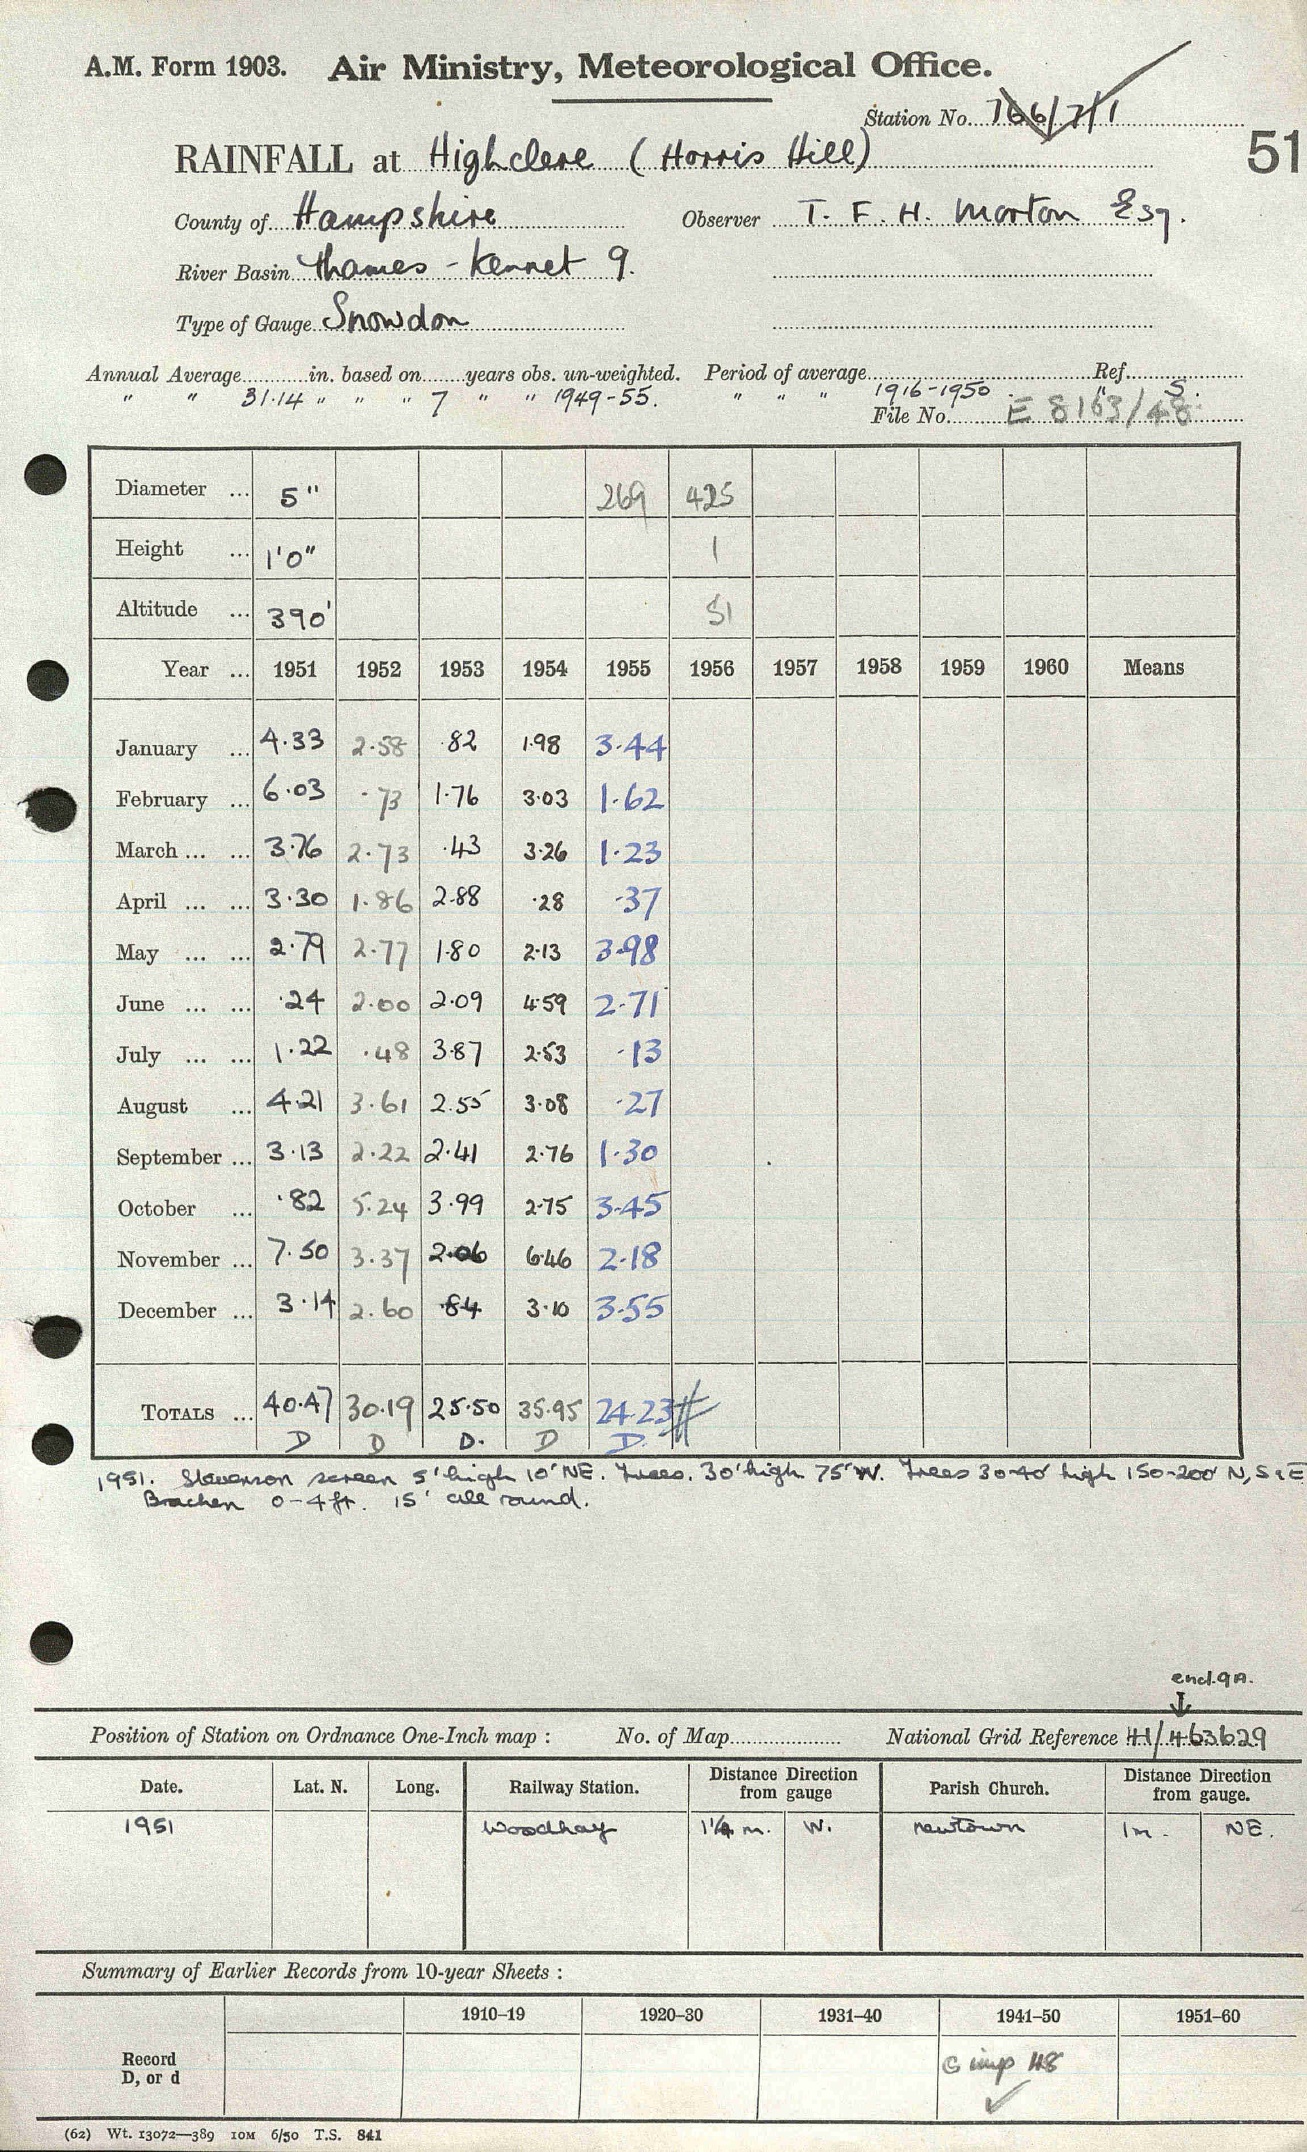 A.M. Form 1903. Air Ministry, Meteorological Office.
Station No. 166/7/1
51
RAINFALL at Highclere (Horris Hill)
County of Hampshire Observer T. F. H. Morton Esq.
River Basin Thames - Kennet 9.
Type of Gauge Snowdon
Annual Average............in. based on........years obs. un-weighted. Period of average.......... Ref..........
" " 31.14 " " " 7 " " 1949-55. " " " 1916-1950. " S.
File No. E 8163/48
Diameter ... 5" 269 425
Height ... 1'0" 1
Altitude ... 390' 51
Year ... 1951 1952 1953 1954 1955 1956 1957 1958 1959 1960 Means
January ... 4.33 2.58 .82 1.98 3.44
February ... 6.03 .73 1.76 3.03 1.62
March ... ... 3.76 2.73 .43 3.26 1.23
April ... ... 3.30 1.86 2.88 .28 .37
May ... ... 2.79 2.77 1.80 2.13 3.98
June ... ... .24 2.00 2.09 4.59 2.71
July ... ... 1.22 .48 3.87 2.53 .13
August ... 4.21 3.61 2.55 3.08 .27
September ... 3.13 2.22 2.41 2.76 1.30
October ... .82 5.24 3.99 2.75 3.45
November ... 7.50 3.37 2.06 6.46 2.18
December ... 3.14 2.60 .84 3.10 3.55
TOTALS ... 40.47 30.19 25.50 35.95 24.23 #
D D D. D D.
1951. Stevenson screen 5' high 10' NE. Trees. 30' high 75' W. Trees 30-40' high 150-200' N, S & E
Bracken 0-4 ft. 15' all round.
encl. 9A.
↓
Position of Station on Ordnance One-Inch map : No. of Map.................... National Grid Reference 41/463629
Date. Lat. N. Long. Railway Station. Distance from gauge Direction Parish Church. Distance from gauge. Direction
1951 Woodhay 1¼ m. W. Newtown 1m. NE.
Summary of Earlier Records from 10-year Sheets :
1910-19 1920-30 1931-40 1941-50 1951-60
Record
D, or d
G imp 48
(62) Wt. 13072—389 10M 6/50 T.S. 841